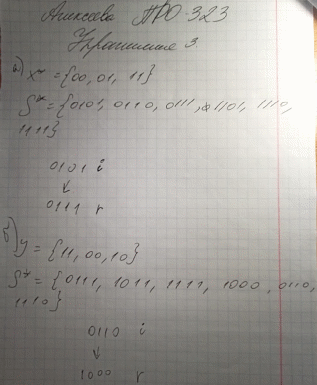 Алексеева ПРО-323
Упражнение 3.
а) x* = {00, 01, 11}
S* = {0101, 0110, 0111, 1101, 1110,
1111}
0101 i
↓
0111 r
б) y = {11, 00, 10}
S* = {0111, 1011, 1111, 1000, 0110,
1110}
0110 i
↓
1000 r